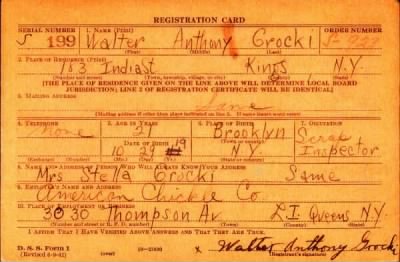 REGISTRATION CARD
SERIAL NUMBER 1. NAME (Print) ORDER NUMBER
S 199 Walter Anthony Grocki
(First) (Middle) (Last)
2. PLACE OF RESIDENCE (Print)
163 India St Kings N.Y.
(Number and street) (Town, township, village, or city) (County) (State)
[THE PLACE OF RESIDENCE GIVEN ON THE LINE ABOVE WILL DETERMINE LOCAL BOARD
JURISDICTION; LINE 2 OF REGISTRATION CERTIFICATE WILL BE IDENTICAL]
3. MAILING ADDRESS
Same
[Mailing address if other than place indicated on line 2. If same insert word same]
4. TELEPHONE 5. AGE IN YEARS 6. PLACE OF BIRTH 7. OCCUPATION
None 21 Brooklyn Scrap
DATE OF BIRTH Inspector
10 29 19 N.Y.
(Exchange) (Number) (Mo.) (Day) (Yr.) (State or country)
8. NAME AND ADDRESS OF PERSON WHO WILL ALWAYS KNOW YOUR ADDRESS
Mrs Stella Grocki Same
9. EMPLOYER'S NAME AND ADDRESS
American Chickle Co.
10. PLACE OF EMPLOYMENT OR BUSINESS
30 30 Thompson Av L.I. Queens N.Y.
(Number and street or R. F. D. number) (Town) (County) (State)
I AFFIRM THAT I HAVE VERIFIED ABOVE ANSWERS AND THAT THEY ARE TRUE.
D. S. S. FORM 1
(Revised 6-9-41) (over) x Walter Anthony Grocki
(Registrant's signature)